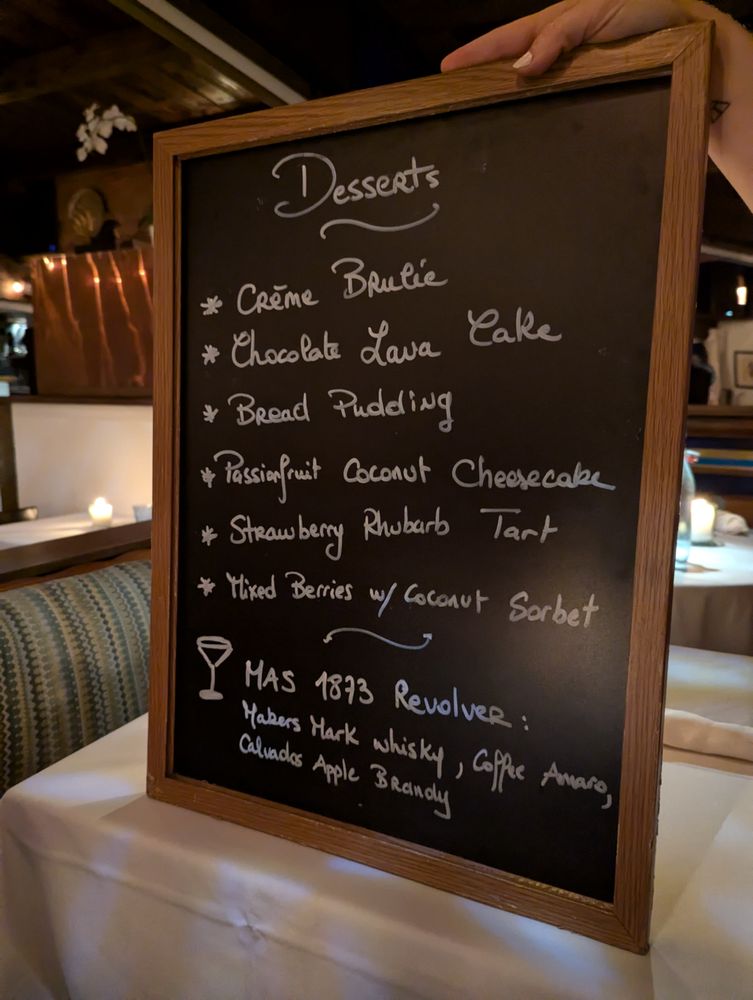 Desserts
* Crēme Brulée
* Chocolate Lava Cake
* Bread Pudding
* Passionfruit Coconut Cheesecake
* Strawberry Rhubarb Tart
* Mixed Berries w/ Coconut Sorbet
MAS 1873 Revolver:
Makers Mark whisky, Coffee Amaro,
Calvados Apple Brandy